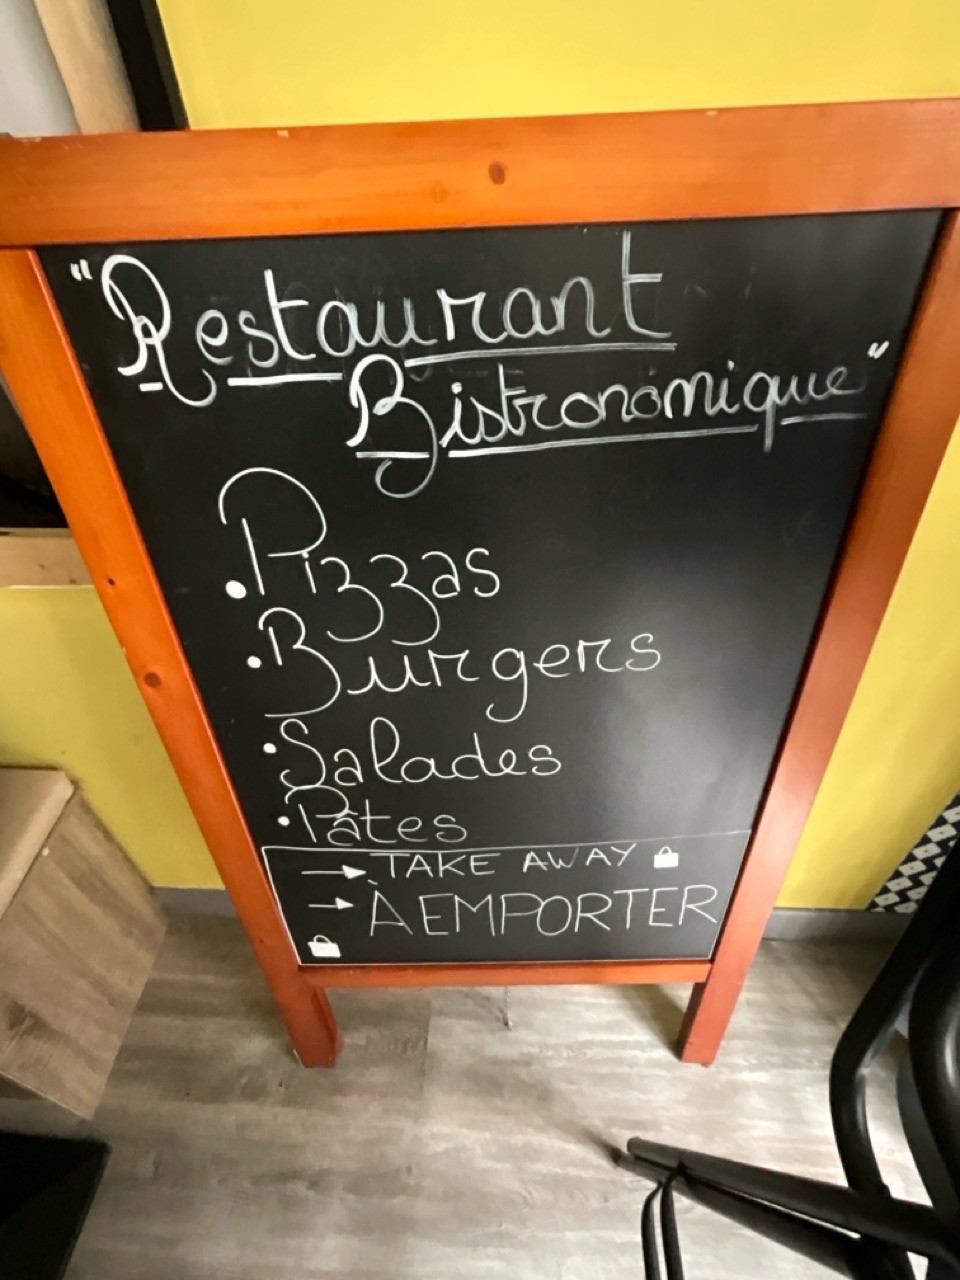 "Restaurant
Bistronomique"
• Pizzas
• Burgers
• Salades
• Pâtes
→ TAKE AWAY
→ À EMPORTER